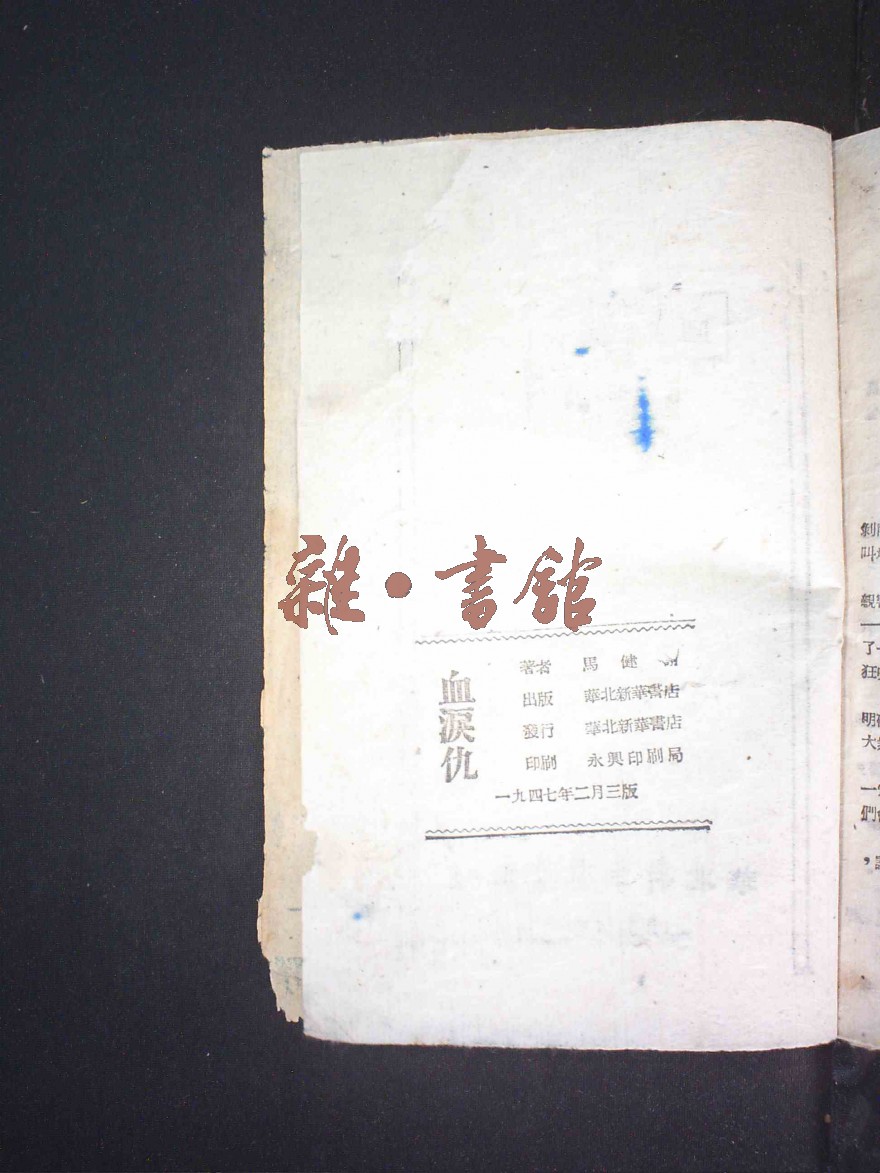 雜·書館
血淚仇
著者 馬健
出版 華北新華書店
發行 華北新華書店
印刷 永興印刷局
一九四七年二月三版
剝
叫
親
了一
狂
明
大
一
們
，